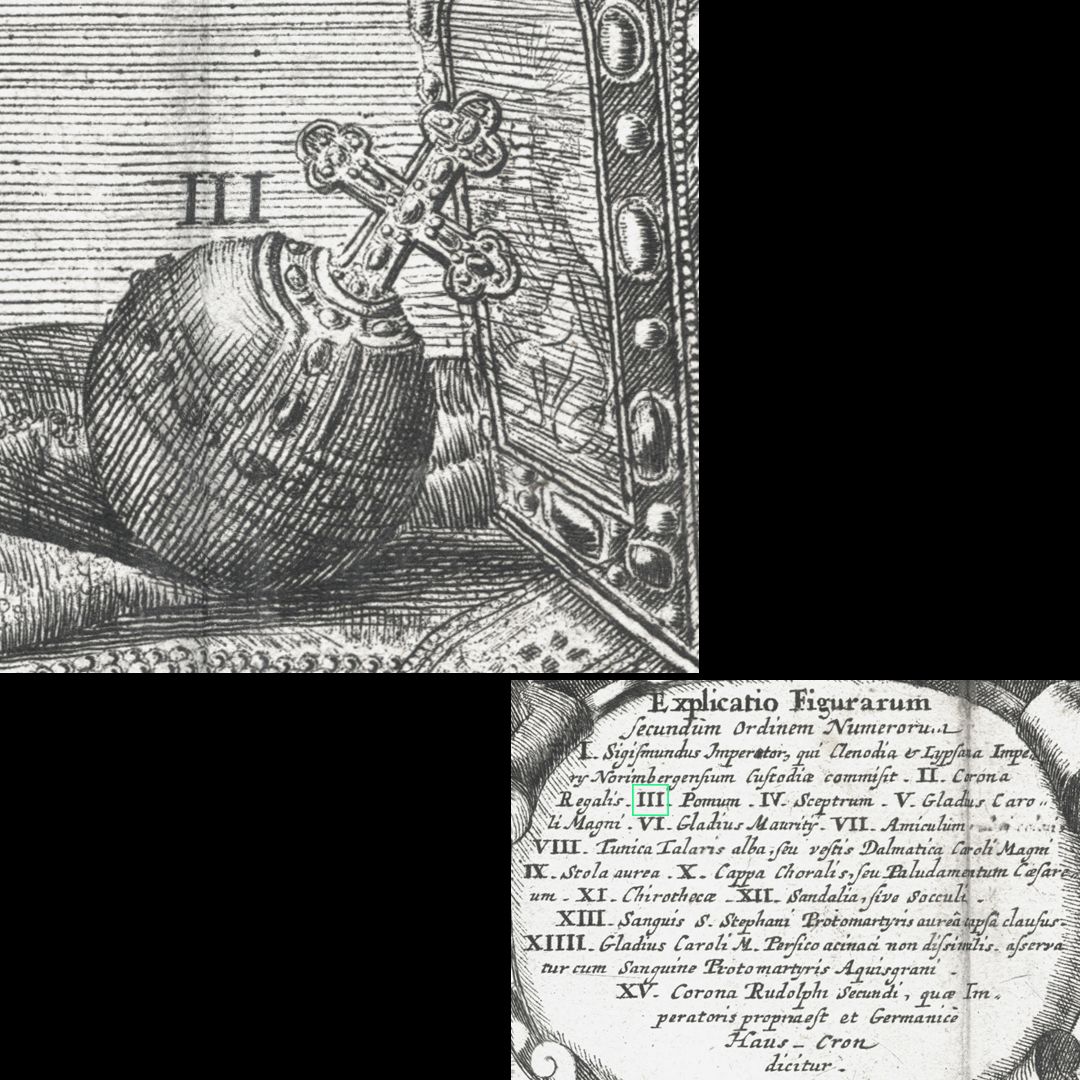 III
Explicatio Figurarum
secundum Ordinem
I. Sigismundus Imperator, qui Clenodia & Lypsana Impe
ry Norimbergensium Custodiæ commisit. II. Corona
Regalis. III. Pomum. IV. Sceptrum. V. Gladus Caro
li Magni. VI. Gladius Maurity. VII. Amiculum
VIII. Tunica Talaris alba, seu vestis Dalmatica Caroli Magni
IX. Stola aurea. X. Cappa Choralis, seu Paludamentum Cæsare
um. XI. Chirothecæ XII. Sandalia, sive Socculi.
XIII. Sanguis S. Stephani Protomartyris aureâ capsâ clausus.
XIIII. Gladius Caroli M. Persico acinaci non dissimilis. asserva
tur cum Sanguine Protomartyris Aquisgrani.
XV. Corona Rudolphi Secundi, quæ Im-
peratoris propria est et Germanicè
Haus-Cron
dicitur.